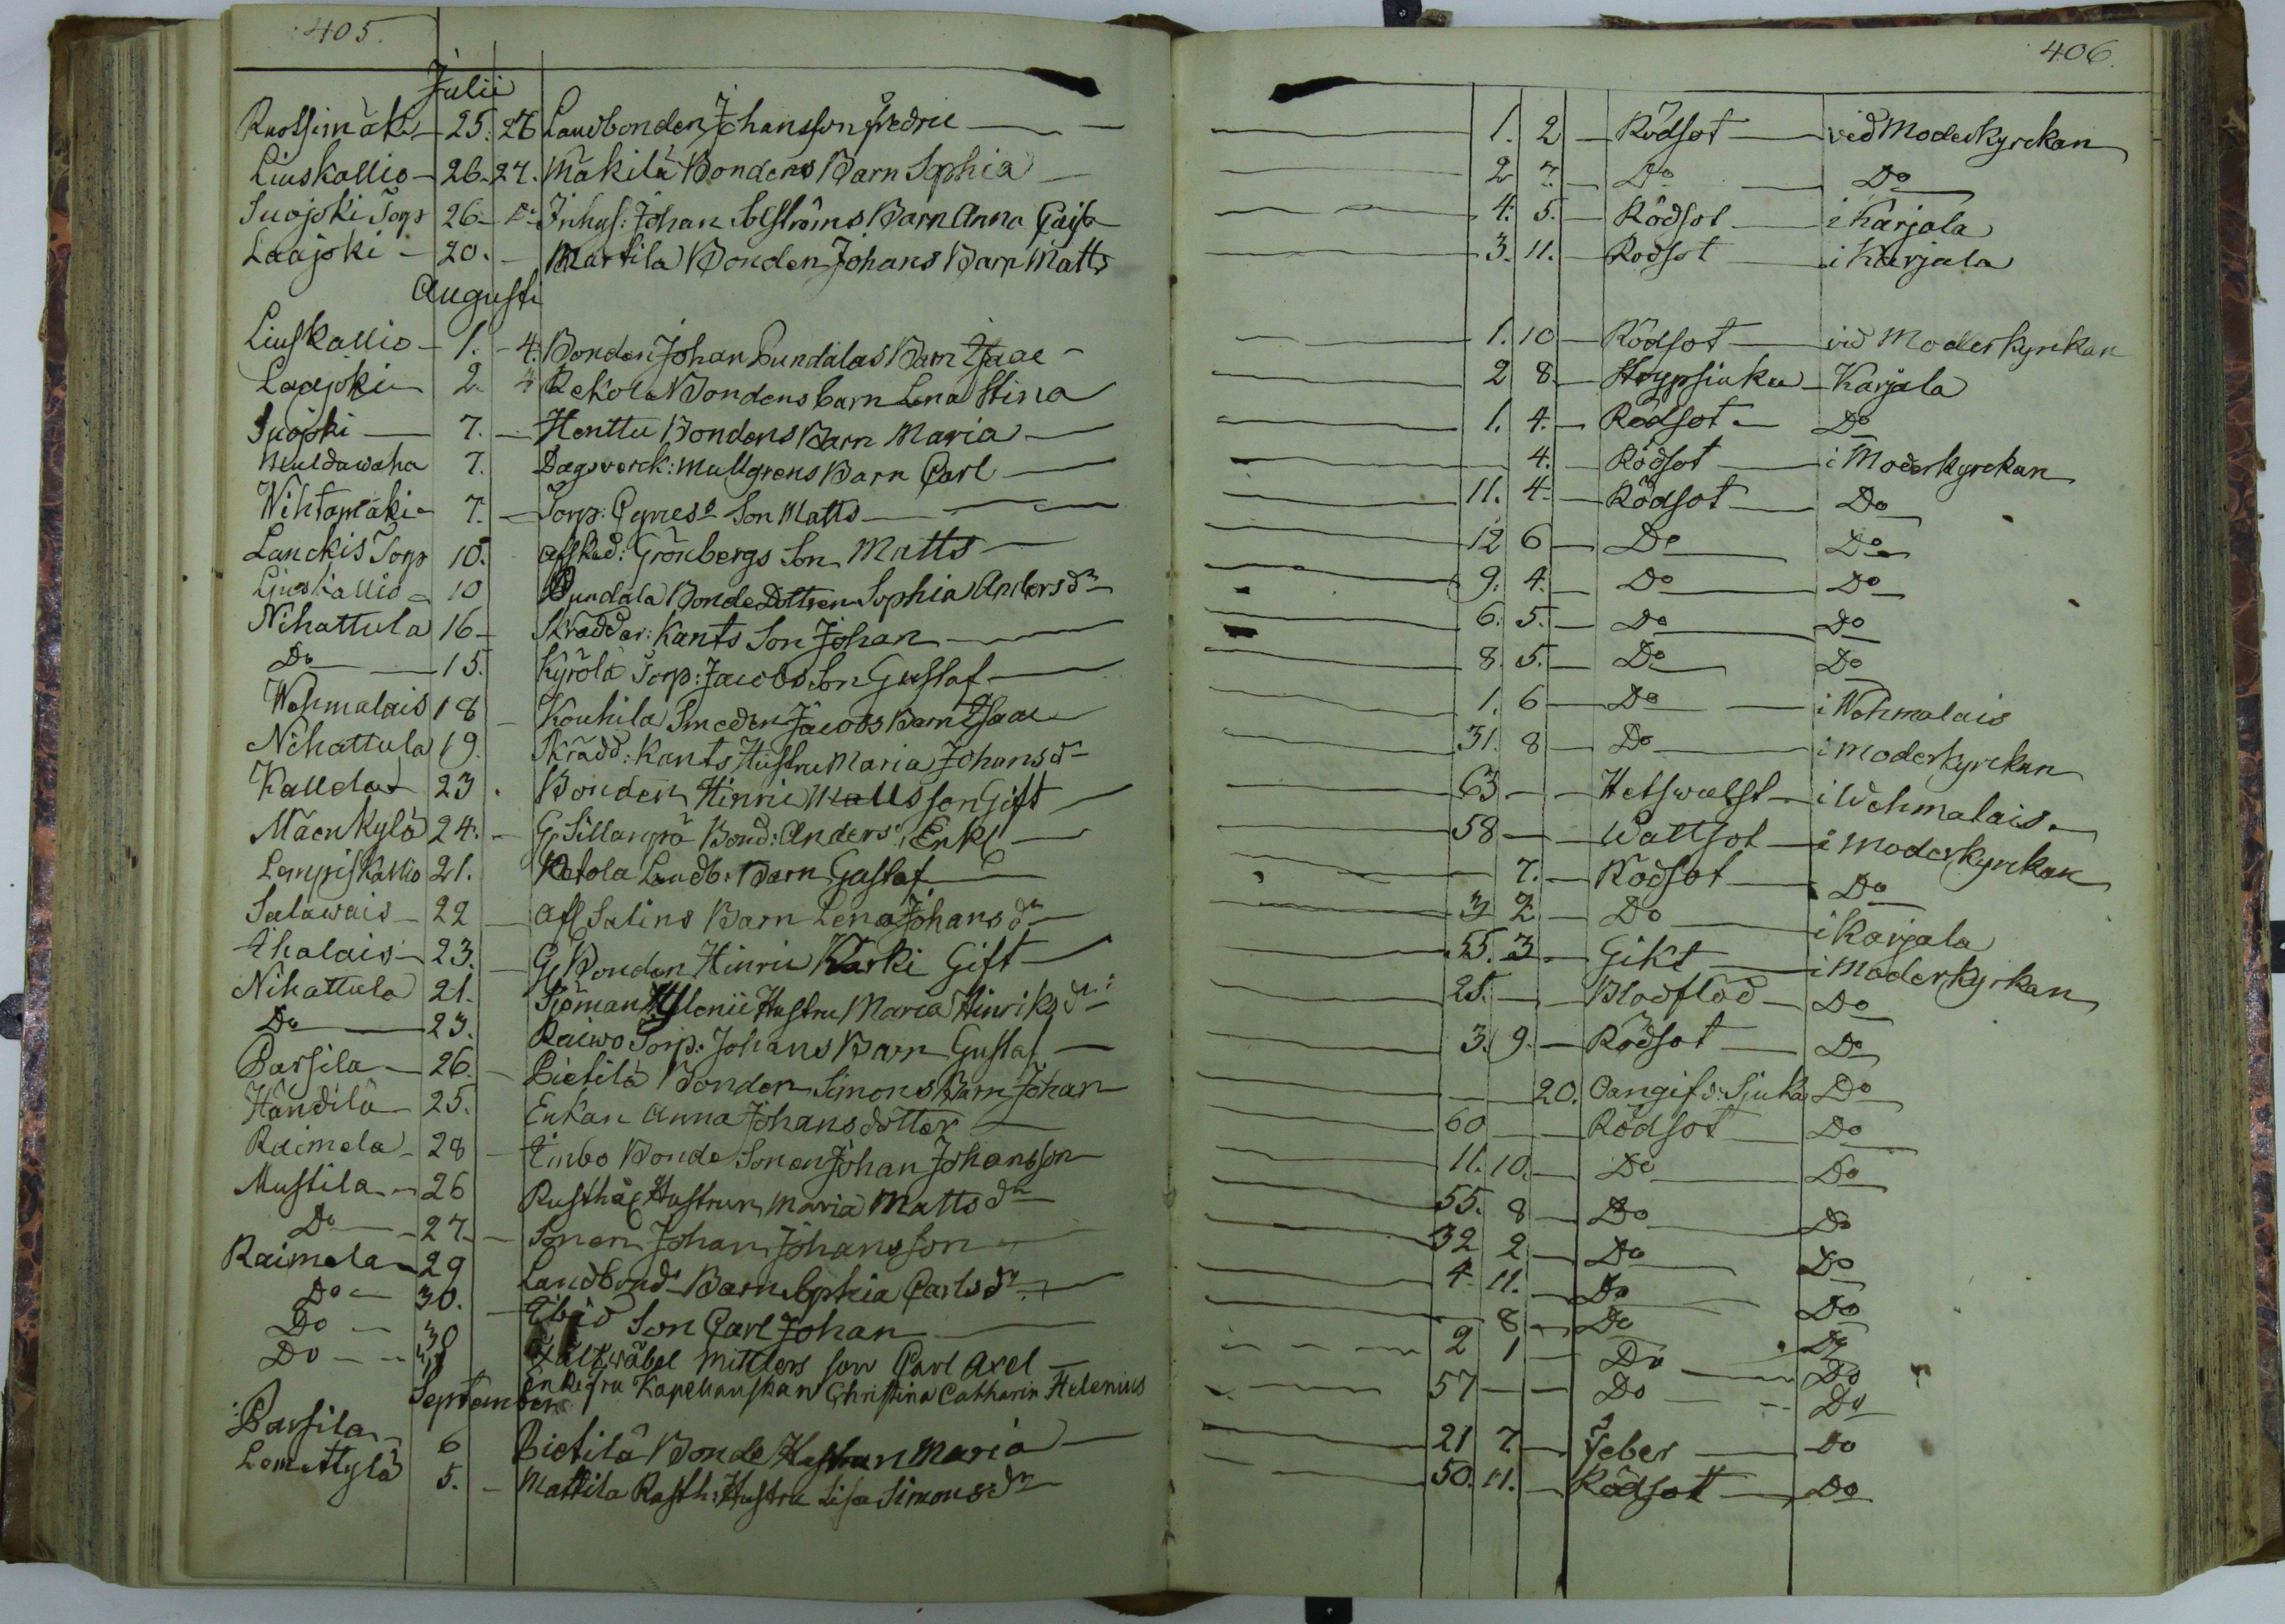 405.
Julii
Ruotsimäki - 25. 26 Landbonden Johansson Fredric
Liuskallio - 26. 27. Mäkilä Bondens Barn Sophia
Suojoki Torp 26 - Do Inhys: Johan Solströms Barn Anna Caisa
Laajoki - 20. - Martila Bonden Johans Barn Matts
Augusti
Liuskallio - 1. - 4. Bonden Johan Pundalas Barn Isaac
Laajoki 2. 4 Rekola Bondens barn Lena Stina
Suojoki 7. - Henttu Bondens Barn Maria
Muldawaha 7. Dagsverck: Mullgrens Barn Carl
Wihtamäki 7. - Torp: Son Matts
Lanckis Torp 10. Afsked: Grönbergs Son Matts
Liuskallio - 10 Pundala Bonde Dottren Sophia Andersdr
Nihattula 16 - Skräddar: Kants Son Johan
Do 15. Kyrölä Torp: Jacobs Son Gustaf
Wehmalais 18 - Kouhila Smeden Jacobs Barn Isaac
Nihattula 19. Skrädd: Kants Hustru Maria Johansdr
Kallela 23. Bonden Hinric Mattsson Gift
Mäenkylä 24. - G. Sillanpä Bond: Anders Enkl
Lempiskallio 21. Ketola Landb: Barn Gustaf
Salawais - 22 - Afl Salins Barn Lena Johansdr
Ihalais - 23. - G. Bonden Hinric Karki Gift
Nihattula 21. Sjöman Hustru Maria Hinriksdr
Do 23. Raiwo Torp: Johans Barn Gustaf
Parsila - 26. - Pietilä Bonden Simons Barn Johan
Händilä 25. Enkan Anna Johansdotter
Raimela - 28 - Timbo Bonde Sonen Johan Johansson
Mustila - 26 Rusthål Hustrun Maria Mattsdr
Do 27 - Sonen Johan Johansson
Raimela - 29 Landbond Barn Sophia Carlsdr
Do - 30. - Son Carl Johan
Do - 30 Fältwäbel Mittlers son Carl Axel
Do Enkefru Kapellanskan Christina Catharin Helenius
September
Parsila 6 Pietilä Bonde Hustrun Maria
Lemettylä 5. - Mattila Rusth: Hustru Lisa Simonsdr
406.
1. 2 - Rödsot - vid Moderkyrckan
2 7. - Do - Do
4. 5. - Rödsot - i Karjala
3. 11. - Rödsot - i Karjala
1. 10 - Rödsot - vid Moderkyrckan
2 8. - Strypsiuka - Karjala
1. 4. - Rödsot - Do
4. - Rödsot - i Moderkyrckan
11. 4 - Rödsot - Do
12 6 - Do - Do
9. 4. - Do - Do
6. 5. - Do - Do
8. 5. - Do - Do
1. 6 - Do - i Wehmalais
31. 8 - Do - i Moderkyrckan
63 - - Hetswulst - i Wehmalais
58 - Wattsot - i Moderkyrckan
7. - Rödsot - Do
3 2 - Do - i Karjala
55. 3 - Gikt - i Moderkyrkan
25. - - Blodflöd - Do
3. 9. - Rödsot - Do
20. Oangifs: Sjuka Do
60 - - Rödsot - Do
11. 10. - Do - Do
55. 8 - Do - Do
32 2 - Do - Do
4 11. - Do - Do
8 - Do - Do
2 1 - Do - Do
57 - - Do - Do
21 7 - Feber - Do
50. 11. - Rödsot - Do